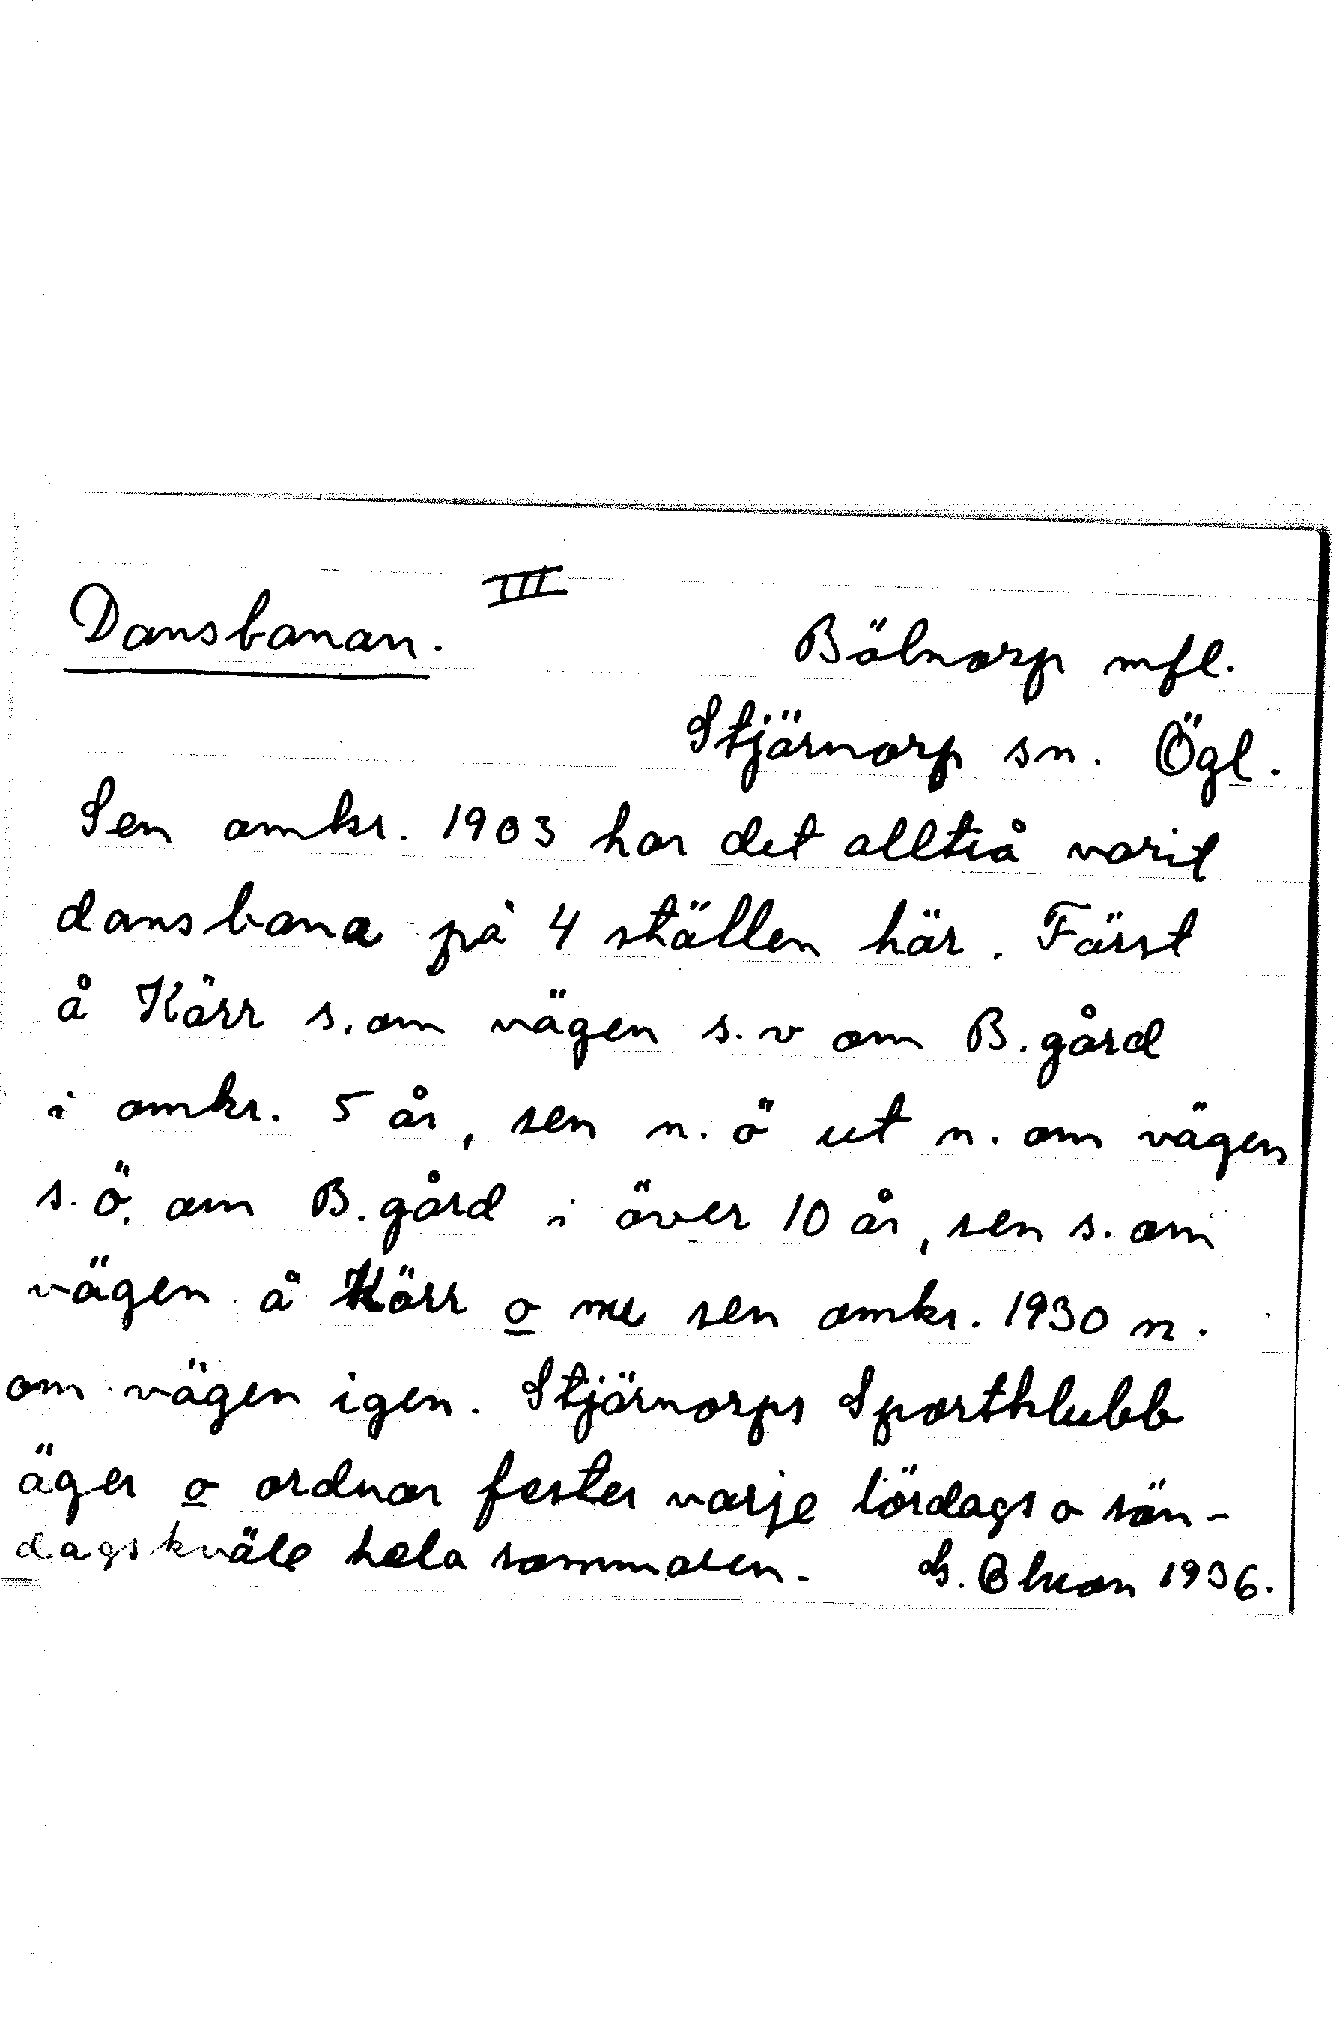 Dansbanan. III
Bölnorp mfl.
Stjärnorp sn. Ögl.
Sen omkr. 1903 har det alltiå varit
dansbana på 4 ställen här. Först
å Kärr s.om vägen s.v om B.gård
i omkr. 5 år, sen n.ö ut n. om vägen
s.ö. om B.gård i över 10 år, sen s.om
vägen å Kärr o nu sen omkr. 1930 n.
om vägen igen. Stjärnorps Sportklubb
äger o ordnar fester varje lördags o sön-
dagskväle hela sommaren. 1936.